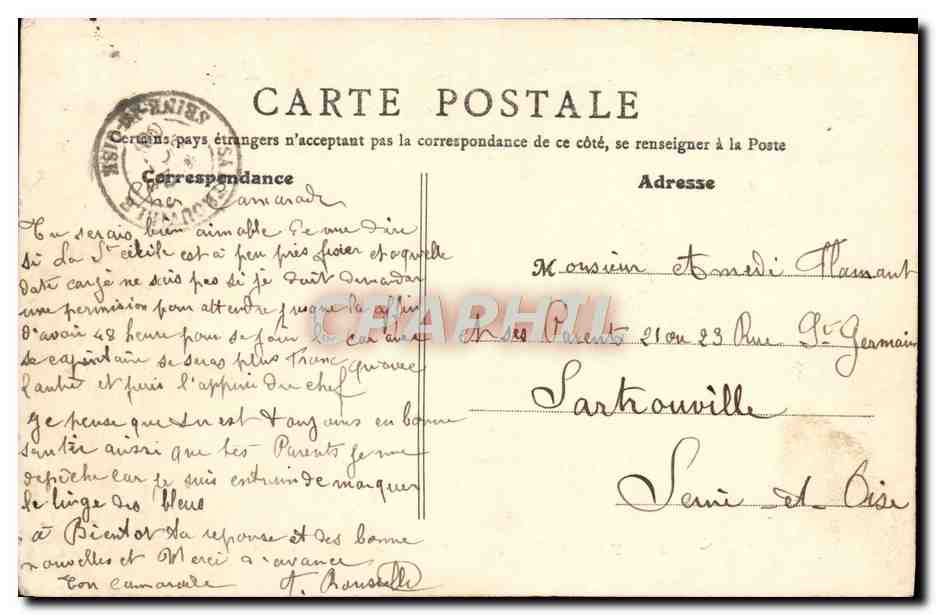 CARTE POSTALE
Certains pays étrangers n'acceptant pas la correspondance de ce côté, se renseigner à la Poste
Correspondance
Adresse
SEINE-ET-OISE
SARTROUVILLE
Cher Camarade
Tu serais bien aimable de me dire
si La Ste cécile est à peu près et a quelle
date car je ne sais pas si je doit demander
une permission pour attendre jusque la affin
d'avoir 48 heure pour se jour la car avec
se capitaine se seras plus franc qu'avec
l'autre et puis l'appui du chef
Je pense que tu est toujours en bonne
santé aussi que tes Parents je me
depêche car je suis entrain de marquer
le linge des bleus
à Bientot ta reponse et des bonne
nouvelles et Merci d'avance
ton camarade A.
Monsieur Amedé Flamant
ses Parents 21 ou 23 Rue St Germain
Sartrouville
Seine et Oise
CPAPHIL